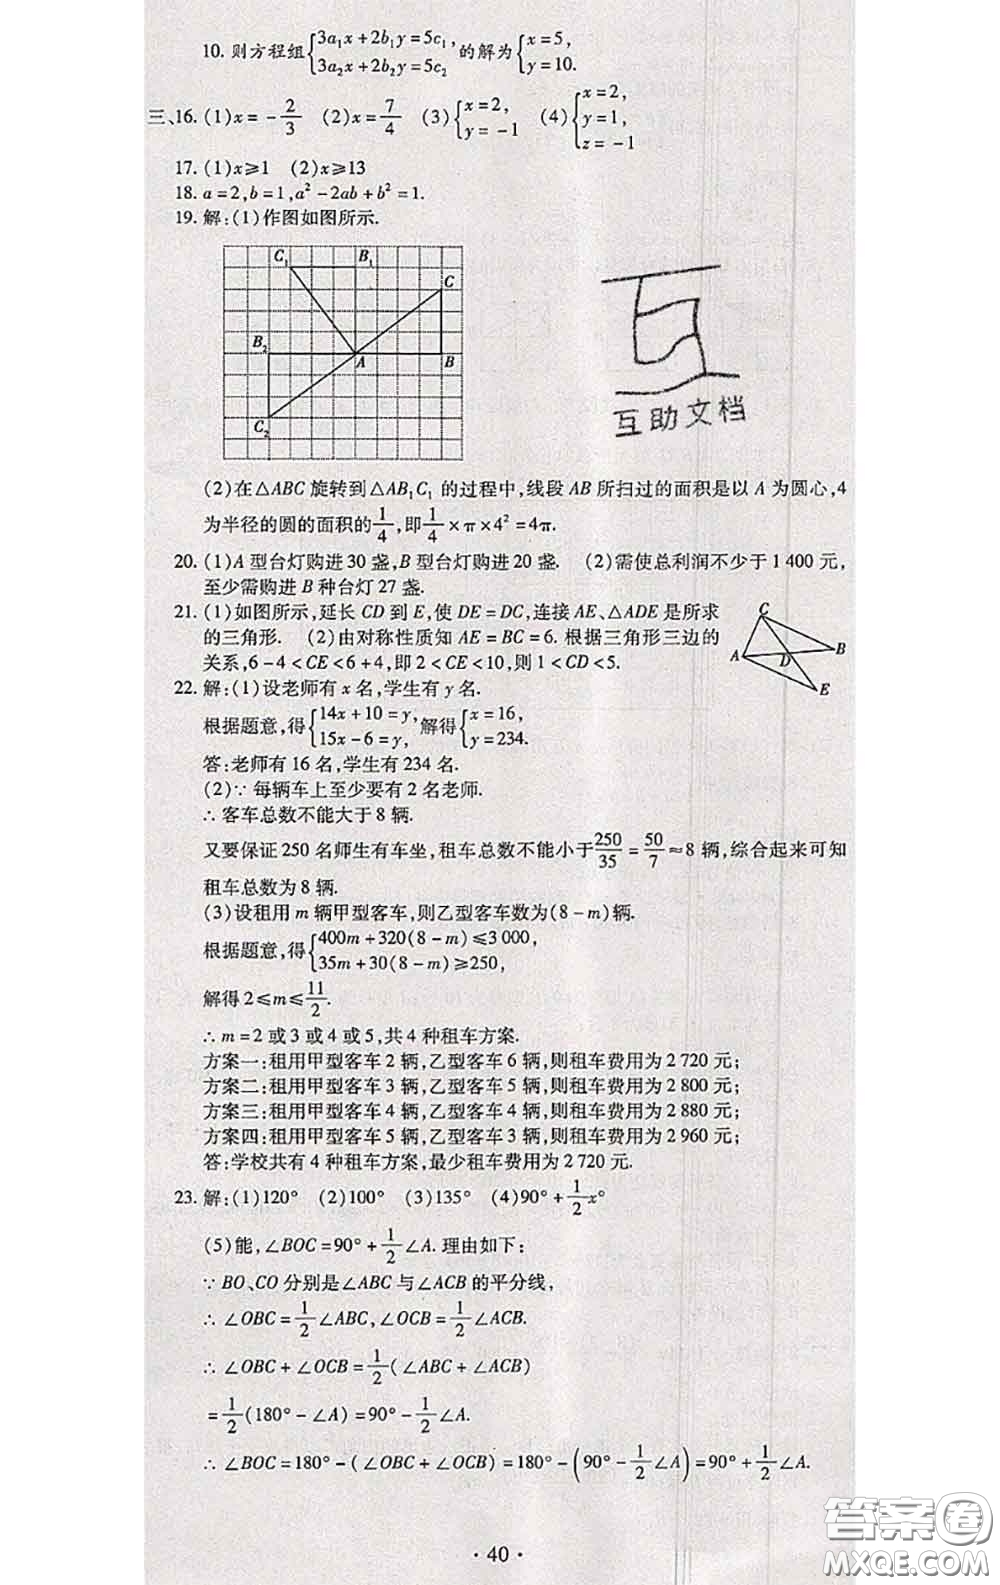 10. 则方程组{3a₁x+2b₁y=5c₁, 3a₂x+2b₂y=5c₂ 的解为{x=5, y=10.
三、16. (1)x=-2/3 (2)x=7/4 (3){x=2, y=-1 (4){x=2, y=1, z=-1
17. (1)x≥1 (2)x≥13
18. a=2,b=1,a²-2ab+b²=1.
19. 解:(1)作图如图所示.
C₁ B₁
C
B₂ A B
C₂
互助文档
(2)在△ABC旋转到△AB₁C₁的过程中,线段AB所扫过的面积是以A为圆心,4
为半径的圆的面积的1/4,即1/4×π×4²=4π.
20. (1)A型台灯购进30盏,B型台灯购进20盏. (2)需使总利润不少于1 400元,
至少需购进B种台灯27盏.
21. (1)如图所示,延长CD到E,使DE=DC,连接AE、△ADE是所求
的三角形. (2)由对称性质知AE=BC=6.根据三角形三边的
关系,6-4<CE<6+4,即2<CE<10,则1<CD<5.
C
A D B
E
22. 解:(1)设老师有x名,学生有y名.
根据题意,得{14x+10=y, 15x-6=y, 解得{x=16, y=234.
答:老师有16名,学生有234名.
(2)∵每辆车上至少要有2名老师.
∴客车总数不能大于8辆.
又要保证250名师生有车坐,租车总数不能小于250/35=50/7≈8辆,综合起来可知
租车总数为8辆.
(3)设租用m辆甲型客车,则乙型客车数为(8-m)辆.
根据题意,得{400m+320(8-m)≤3 000, 35m+30(8-m)≥250,
解得2≤m≤11/2.
∴m=2或3或4或5,共4种租车方案.
方案一:租用甲型客车2辆,乙型客车6辆,则租车费用为2 720元;
方案二:租用甲型客车3辆,乙型客车5辆,则租车费用为2 800元;
方案三:租用甲型客车4辆,乙型客车4辆,则租车费用为2 880元;
方案四:租用甲型客车5辆,乙型客车3辆,则租车费用为2 960元;
答:学校共有4种租车方案,最少租车费用为2 720元.
23. 解:(1)120° (2)100° (3)135° (4)90°+1/2x°
(5)能,∠BOC=90°+1/2∠A.理由如下:
∵BO、CO分别是∠ABC与∠ACB的平分线,
∴∠OBC=1/2∠ABC,∠OCB=1/2∠ACB.
∴∠OBC+∠OCB=1/2(∠ABC+∠ACB)
=1/2(180°-∠A)=90°-1/2∠A.
∴∠BOC=180°-(∠OBC+∠OCB)=180°-(90°-1/2∠A)=90°+1/2∠A.
·40·
答案圈
MXQE.COM